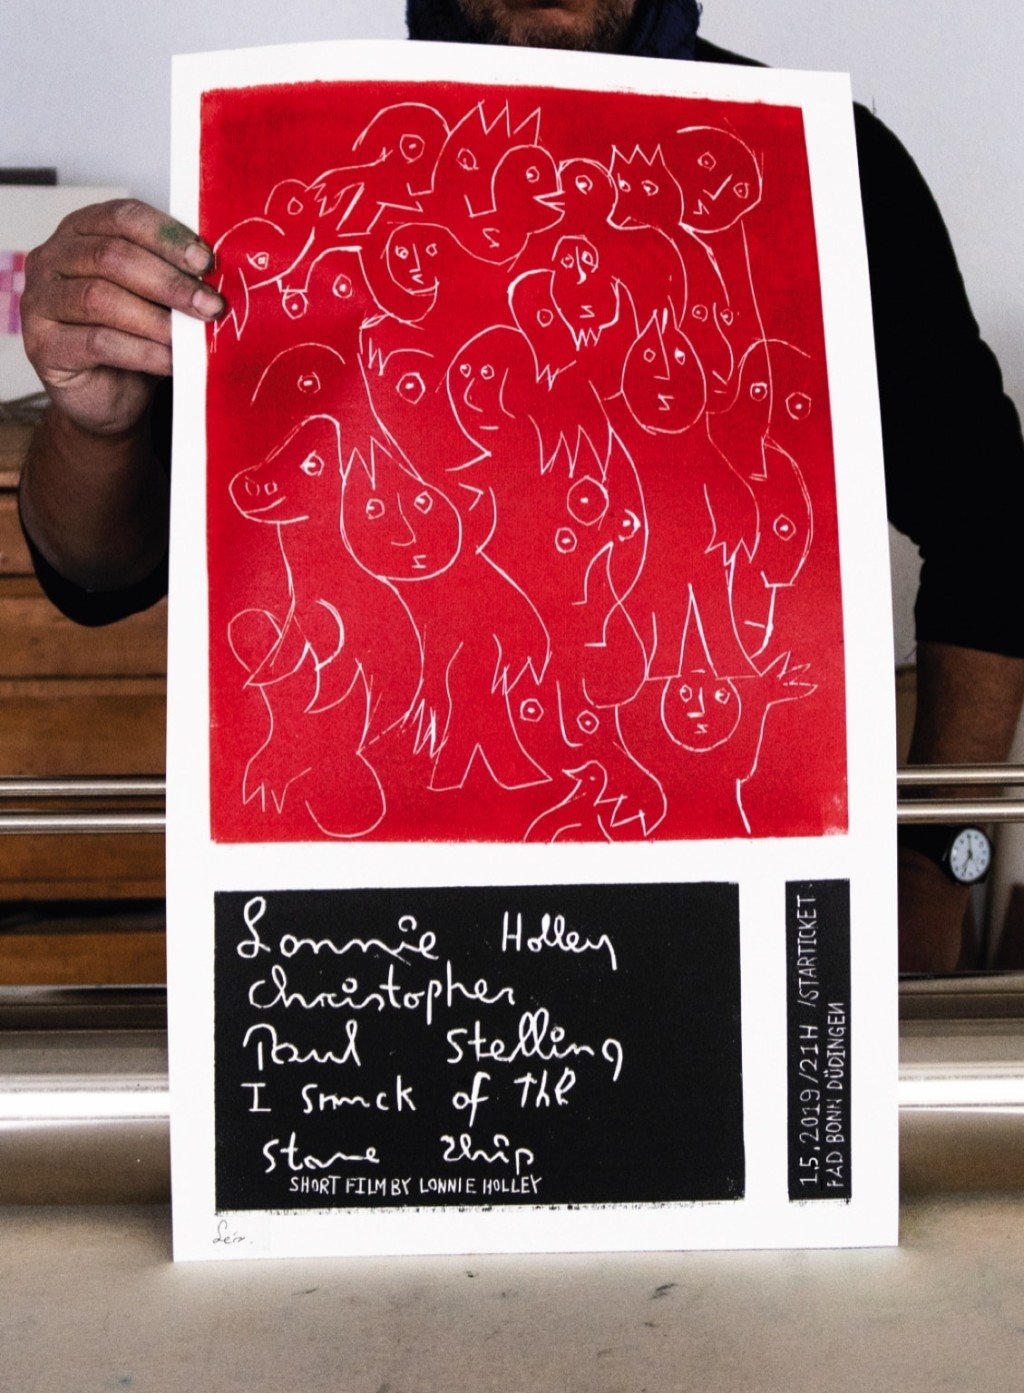 Lonnie Holley
Christopher
Paul Stelling
I Snuck of The
Stone Ship
SHORT FILM BY LONNIE HOLLEY
1.5.2019/21H /STARTICKET
BAD BONN DÜDINGEN